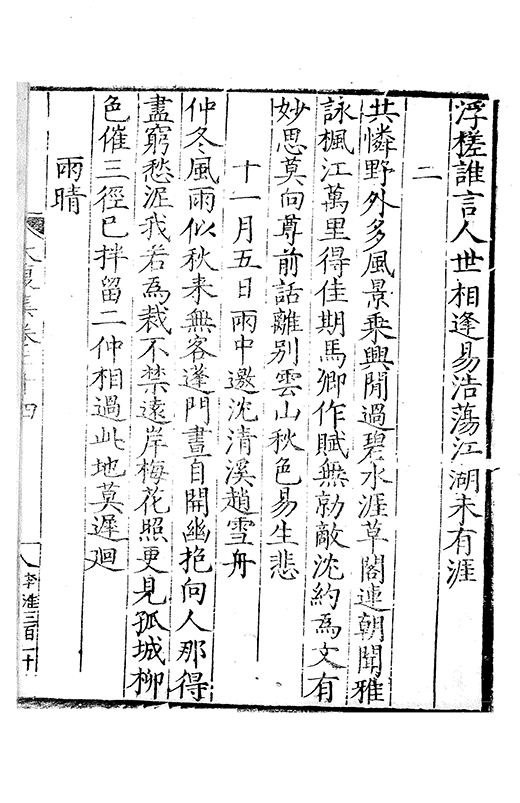 浮槎誰言人世相逢易浩蕩江湖未有涯
二
共憐野外多風景乗興閒過碧水涯草閣連朝聞雅
詠楓江萬里得佳期馬卿作賦無勍敵沈約為文有
妙思莫向尊前話離別雲山秋色易生悲
十一月五日雨中邀沈清溪趙雪舟
仲冬風雨似秋来無客蓬門晝自開幽抱向人那得
盡窮愁涯我若為裁不禁遠岸梅花照更見孤城柳
色催三徑巳拌留二仲相過此地莫遲廻
雨晴
大復集卷二十四
李淮三百二十